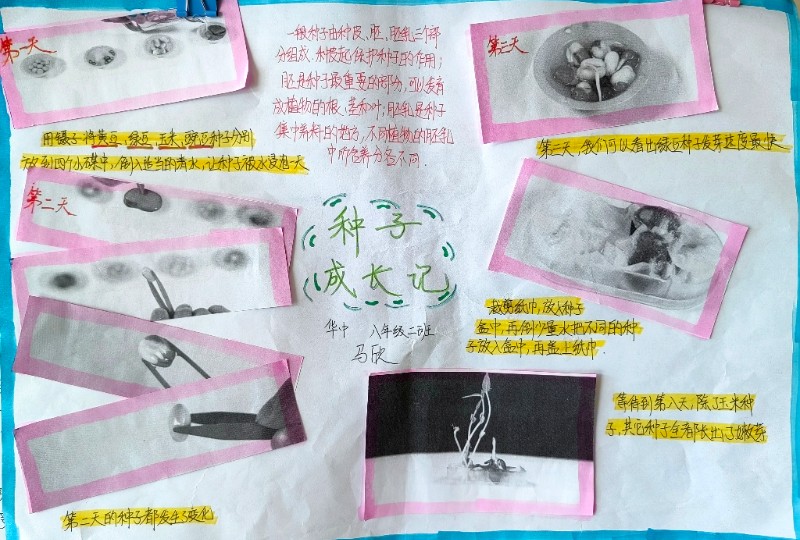 第一天
用镊子将黄豆,绿豆,玉米,豌豆种子分别
放到四个小碟中,倒入适当的清水,让种子被水浸泡一天
第二天
第二天的种子都发生了变化
一般种子由种皮、胚、胚乳三个部
分组成,种皮起保护种子的作用;
胚是种子最重要的部分,可以发育
成植物的根、茎和叶,胚乳是种子
集中养料的地方,不同植物的胚乳
中所含养分各不同.
种子
成长记
华中 八年级二班
马欣
第三天
第三天,我们可以看出绿豆种子发芽速度最快
裁剪纸巾,放入种子
盒中,再倒少量水把不同的种
子放入盒中,再盖上纸巾.
等待到第八天,除了玉米种
子,其它种子全者都长出了嫩芽